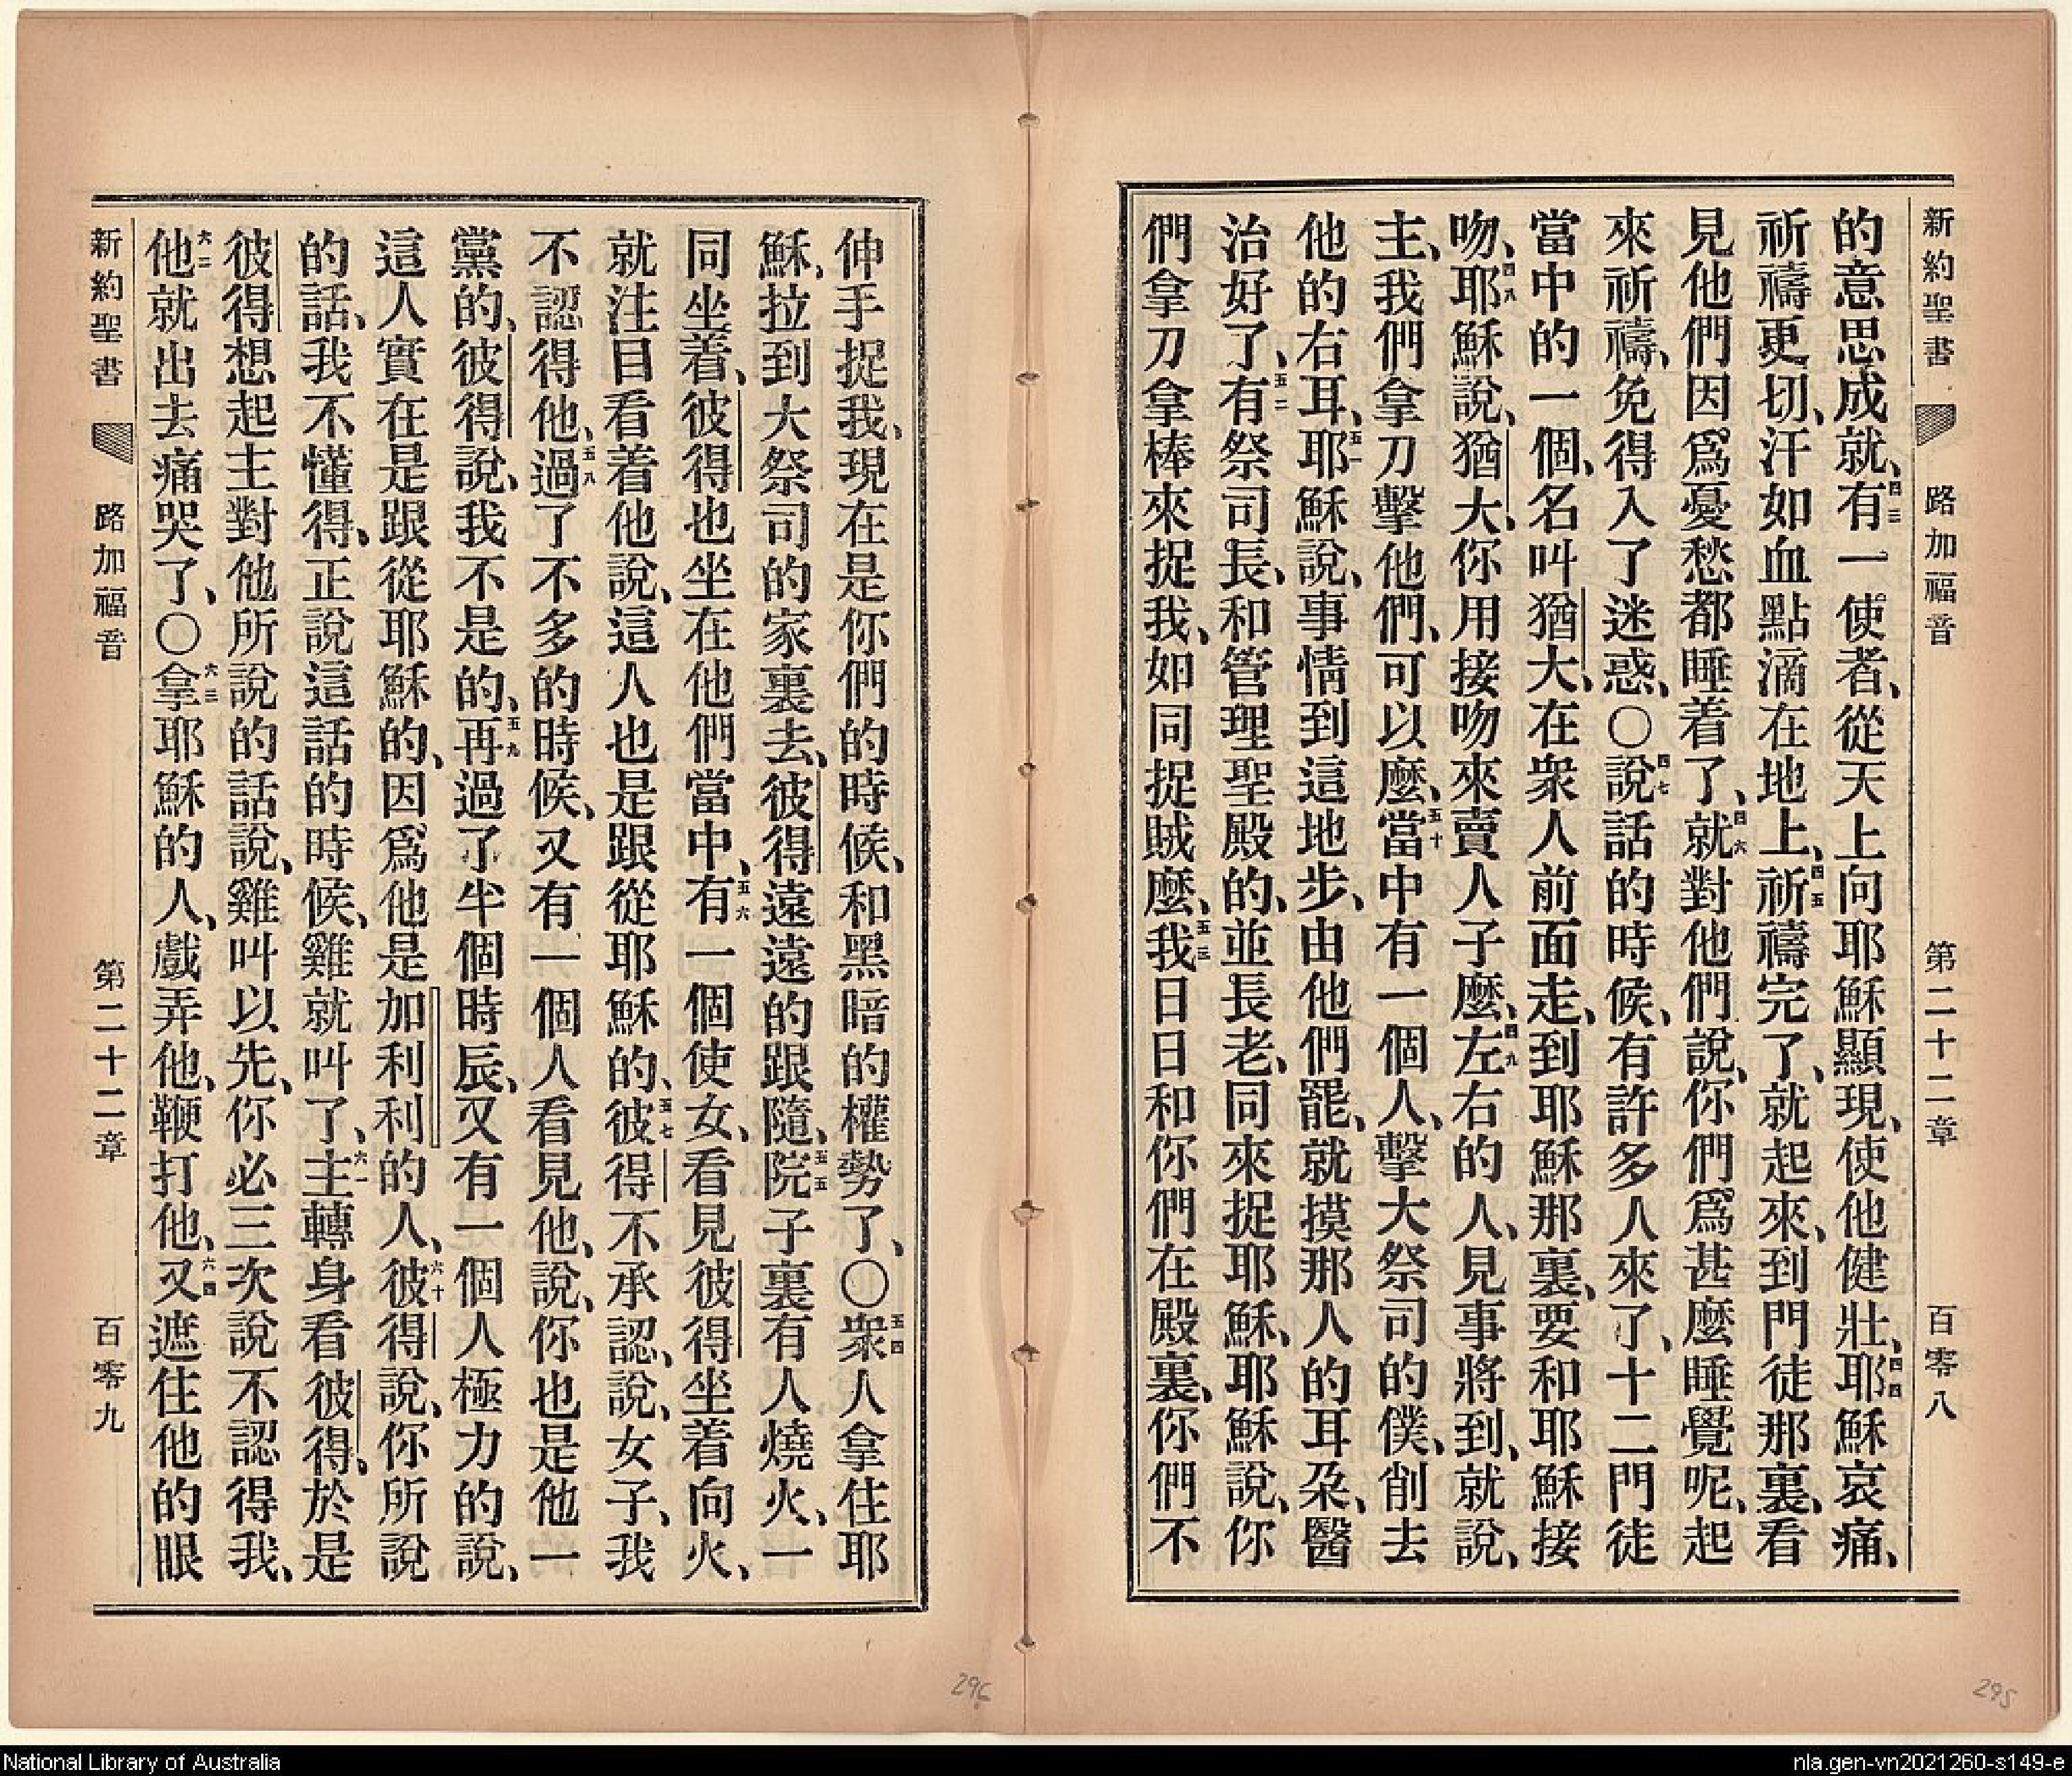 新約聖書 路加福音 第二十二章 百零八
的意思成就、四三有一使者、從天上向耶穌顯現、使他健壯、四四耶穌哀痛、
祈禱更切、汗如血點滴在地上、四五祈禱完了、就起來、到門徒那裏、看
見他們因爲憂愁都睡着了、四六就對他們說、你們爲甚麼睡覺呢、起
來祈禱、免得入了迷惑、〇四七說話的時候、有許多人來了、十二門徒
當中的一個、名叫猶大、在衆人前面走、到耶穌那裏、要和耶穌接
吻、四八耶穌說、猶大、你用接吻來賣人子麼、四九左右的人、見事將到、就說、
主、我們拿刀擊他們、可以麼、五十當中有一個人、擊大祭司的僕、削去
他的右耳、五一耶穌說、事情到這地步、由他們罷、就摸那人的耳朶、醫
治好了、五二有祭司長、和管理聖殿的、並長老、同來捉耶穌、耶穌說、你
們拿刀拿棒來捉我、如同捉賊麼、五三我日日和你們在殿裏、你們不
伸手捉我、現在是你們的時候、和黑暗的權勢了、〇五四衆人拿住耶
穌、拉到大祭司的家裏去、彼得遠遠的跟隨、五五院子裏有人燒火、一
同坐着、彼得也坐在他們當中、五六有一個使女、看見彼得坐着向火、
就注目看着他說、這人也是跟從耶穌的、五七彼得不承認、說、女子、我
不認得他、五八過了不多的時候、又有一個人看見他、說、你也是他一
黨的、彼得說、我不是的、五九再過了半個時辰、又有一個人極力的說、
這人實在是跟從耶穌的、因爲他是加利利的人、六十彼得說、你所說
的話、我不懂得、正說這話的時候、雞就叫了、六一主轉身看彼得、於是
彼得想起主對他所說的話說、雞叫以先、你必三次說不認得我、
六二他就出去痛哭了、〇六三拿耶穌的人、戲弄他、鞭打他、六四又遮住他的眼
新約聖書 路加福音 第二十二章 百零九
296
295
National Library of Australia
nla.gen-vn2021260-s149-e